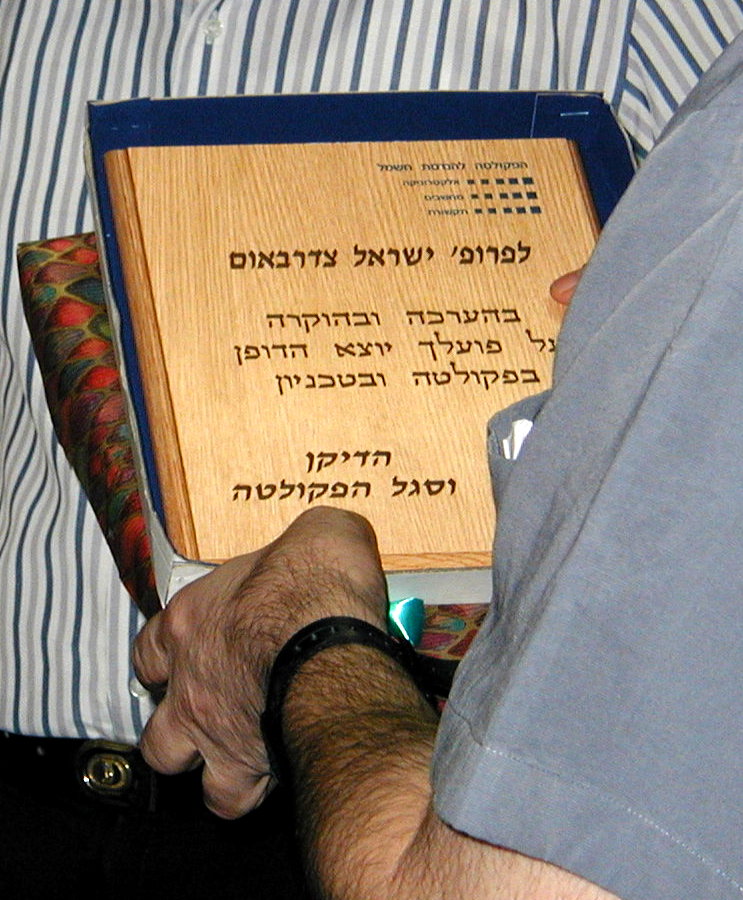 הפקולטה להנדסת חשמל
אלקטרוניקה
מחשבים
תקשורת
לפרופ׳ ישראל צדרבאום
בהערכה ובהוקרה
על פועלך יוצא הדופן
בפקולטה ובטכניון
הדיקן
וסגל הפקולטה